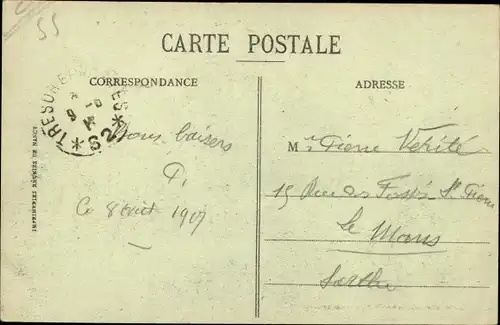 55
CARTE POSTALE
CORRESPONDANCE
ADRESSE
TRESOR ET POSTES
* 52 *
IMPRIMERIES RÉUNIES DE NANCY
baisers
P.
Ce 8 août 1917
Mr Pierre Vérité
15 Rue des Fossés St Pierre
Le Mans
Sarthe